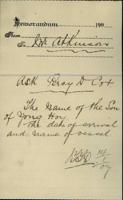 Memorandum 190
From
To Mr Atkinson
Ask Percy D. Cox
The Name of the Son
of Yong Hoy
the date of arrival
and name of vessel